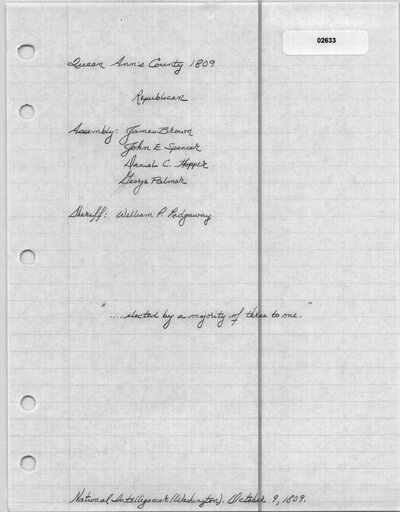 02633
Queen Ann's County 1809
Republican
Assembly: James Brown
John E Spencer
Daniel C. Hopper
George Palmer
Sheriff: William P. Ridgaway
"....elected by a majority of three to one."
National Intelligencer (Washington). October 9, 1809.